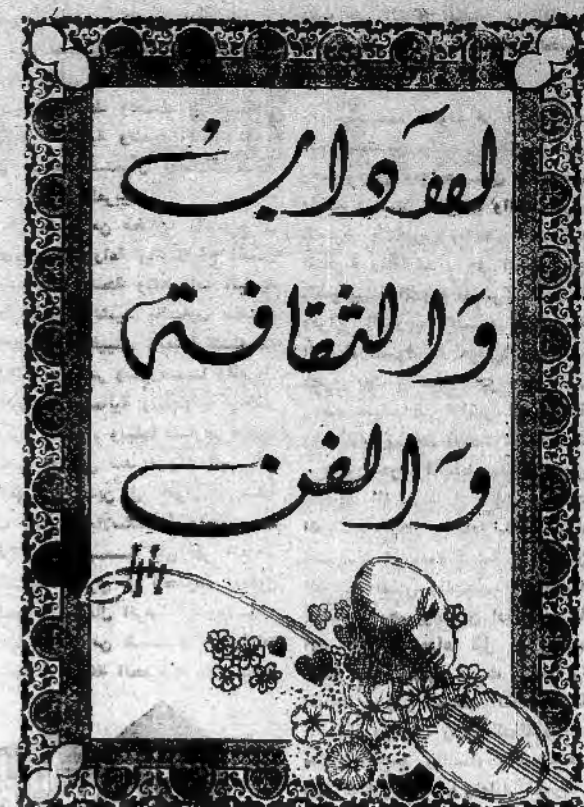 الآدابُ
وَالثقافة
وَالفن